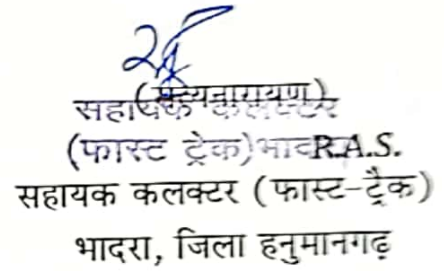 (सत्यनारायण)
सहायक कलक्टर
(फास्ट ट्रेक) भादरा R.A.S.
सहायक कलक्टर (फास्ट-ट्रैक)
भादरा, जिला हनुमानगढ़